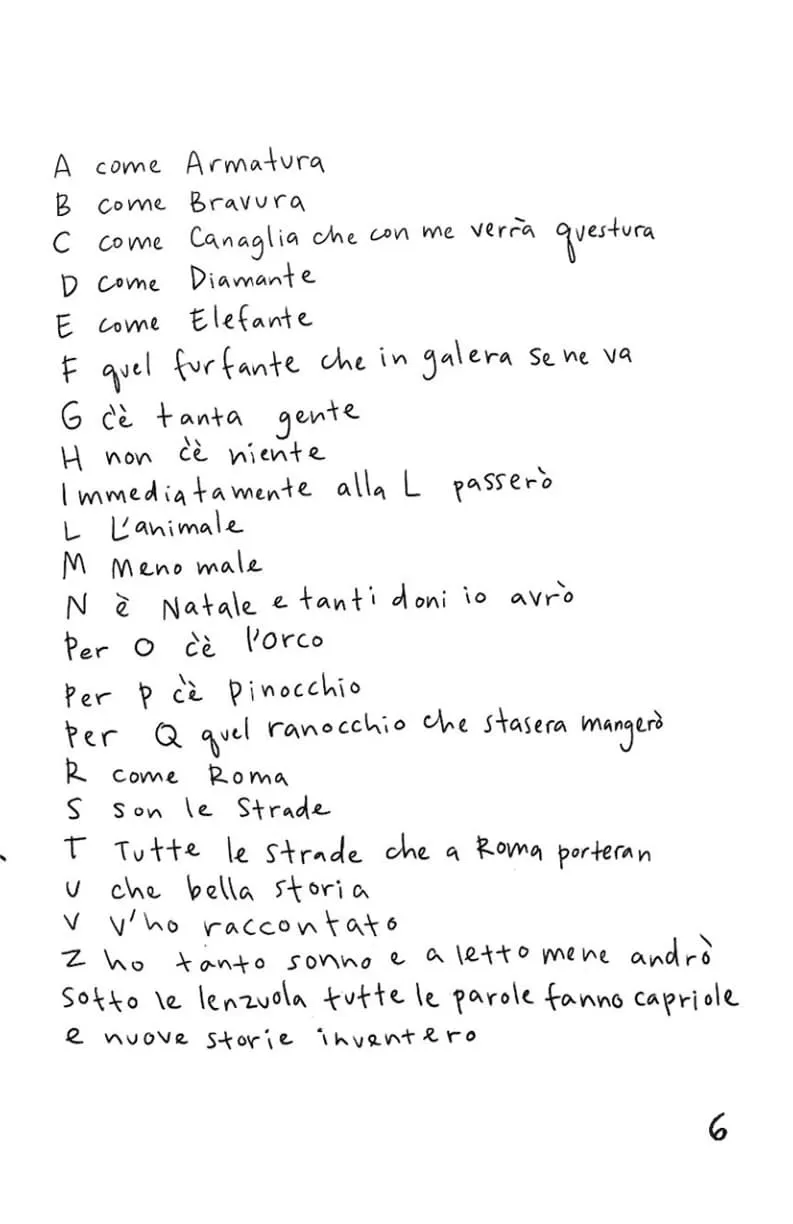 A come Armatura
B come Bravura
C come Canaglia che con me verrà questura
D come Diamante
E come Elefante
F quel furfante che in galera se ne va
G c'è tanta gente
H non c'è niente
Immediatamente alla L passerò
L L'animale
M Meno male
N è Natale e tanti doni io avrò
Per O c'è l'orco
Per P c'è Pinocchio
Per Q quel ranocchio che stasera mangerò
R come Roma
S son le Strade
T Tutte le strade che a Roma porteran
U che bella storia
V v'ho raccontato
Z ho tanto sonno e a letto mene andrò
Sotto le lenzuola tutte le parole fanno capriole
e nuove storie inventero
6